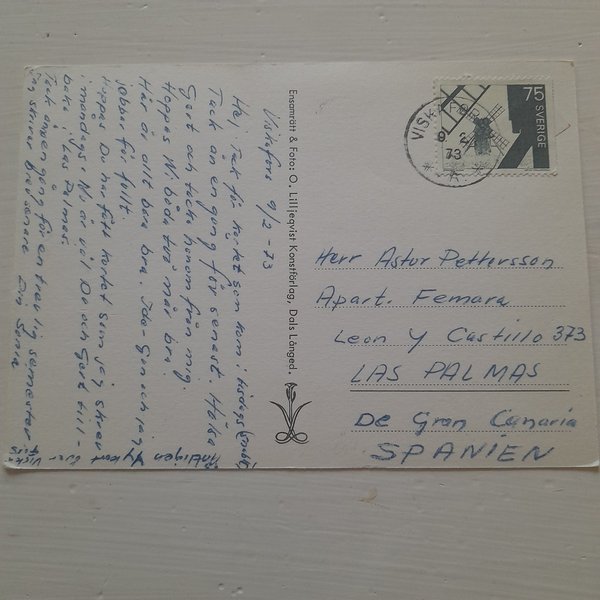 Viskafors 9/2-73
Hej, Tack för kortet som kom i tisdags (snabbt)
Tack än en gång för senast. Hälsa
Gert och tacka honom från mig.
Hoppas Ni båda två mår bra.
Här är allt bara bra. Ida-Gun och jag
jobbar för fullt.
Hoppas Du har fått kortet som jag skrev
i måndags. Nu är väl Du och Gert till-
baka i Las Palmas.
Tack ännu en gång för en trevlig semester.
Jag skriver brev senare Din Sonia
Äntligen Vykort över Viska
fors
Ensamrätt & Foto: O. Lilljeqvist Konstförlag, Dals Långed.
VISKAFORS
9 2
73
* A *
75
SVERIGE
Herr Astor Pettersson
Apart. Femara
Leon y Castillo 373
LAS PALMAS
De Gran Canaria
SPANIEN